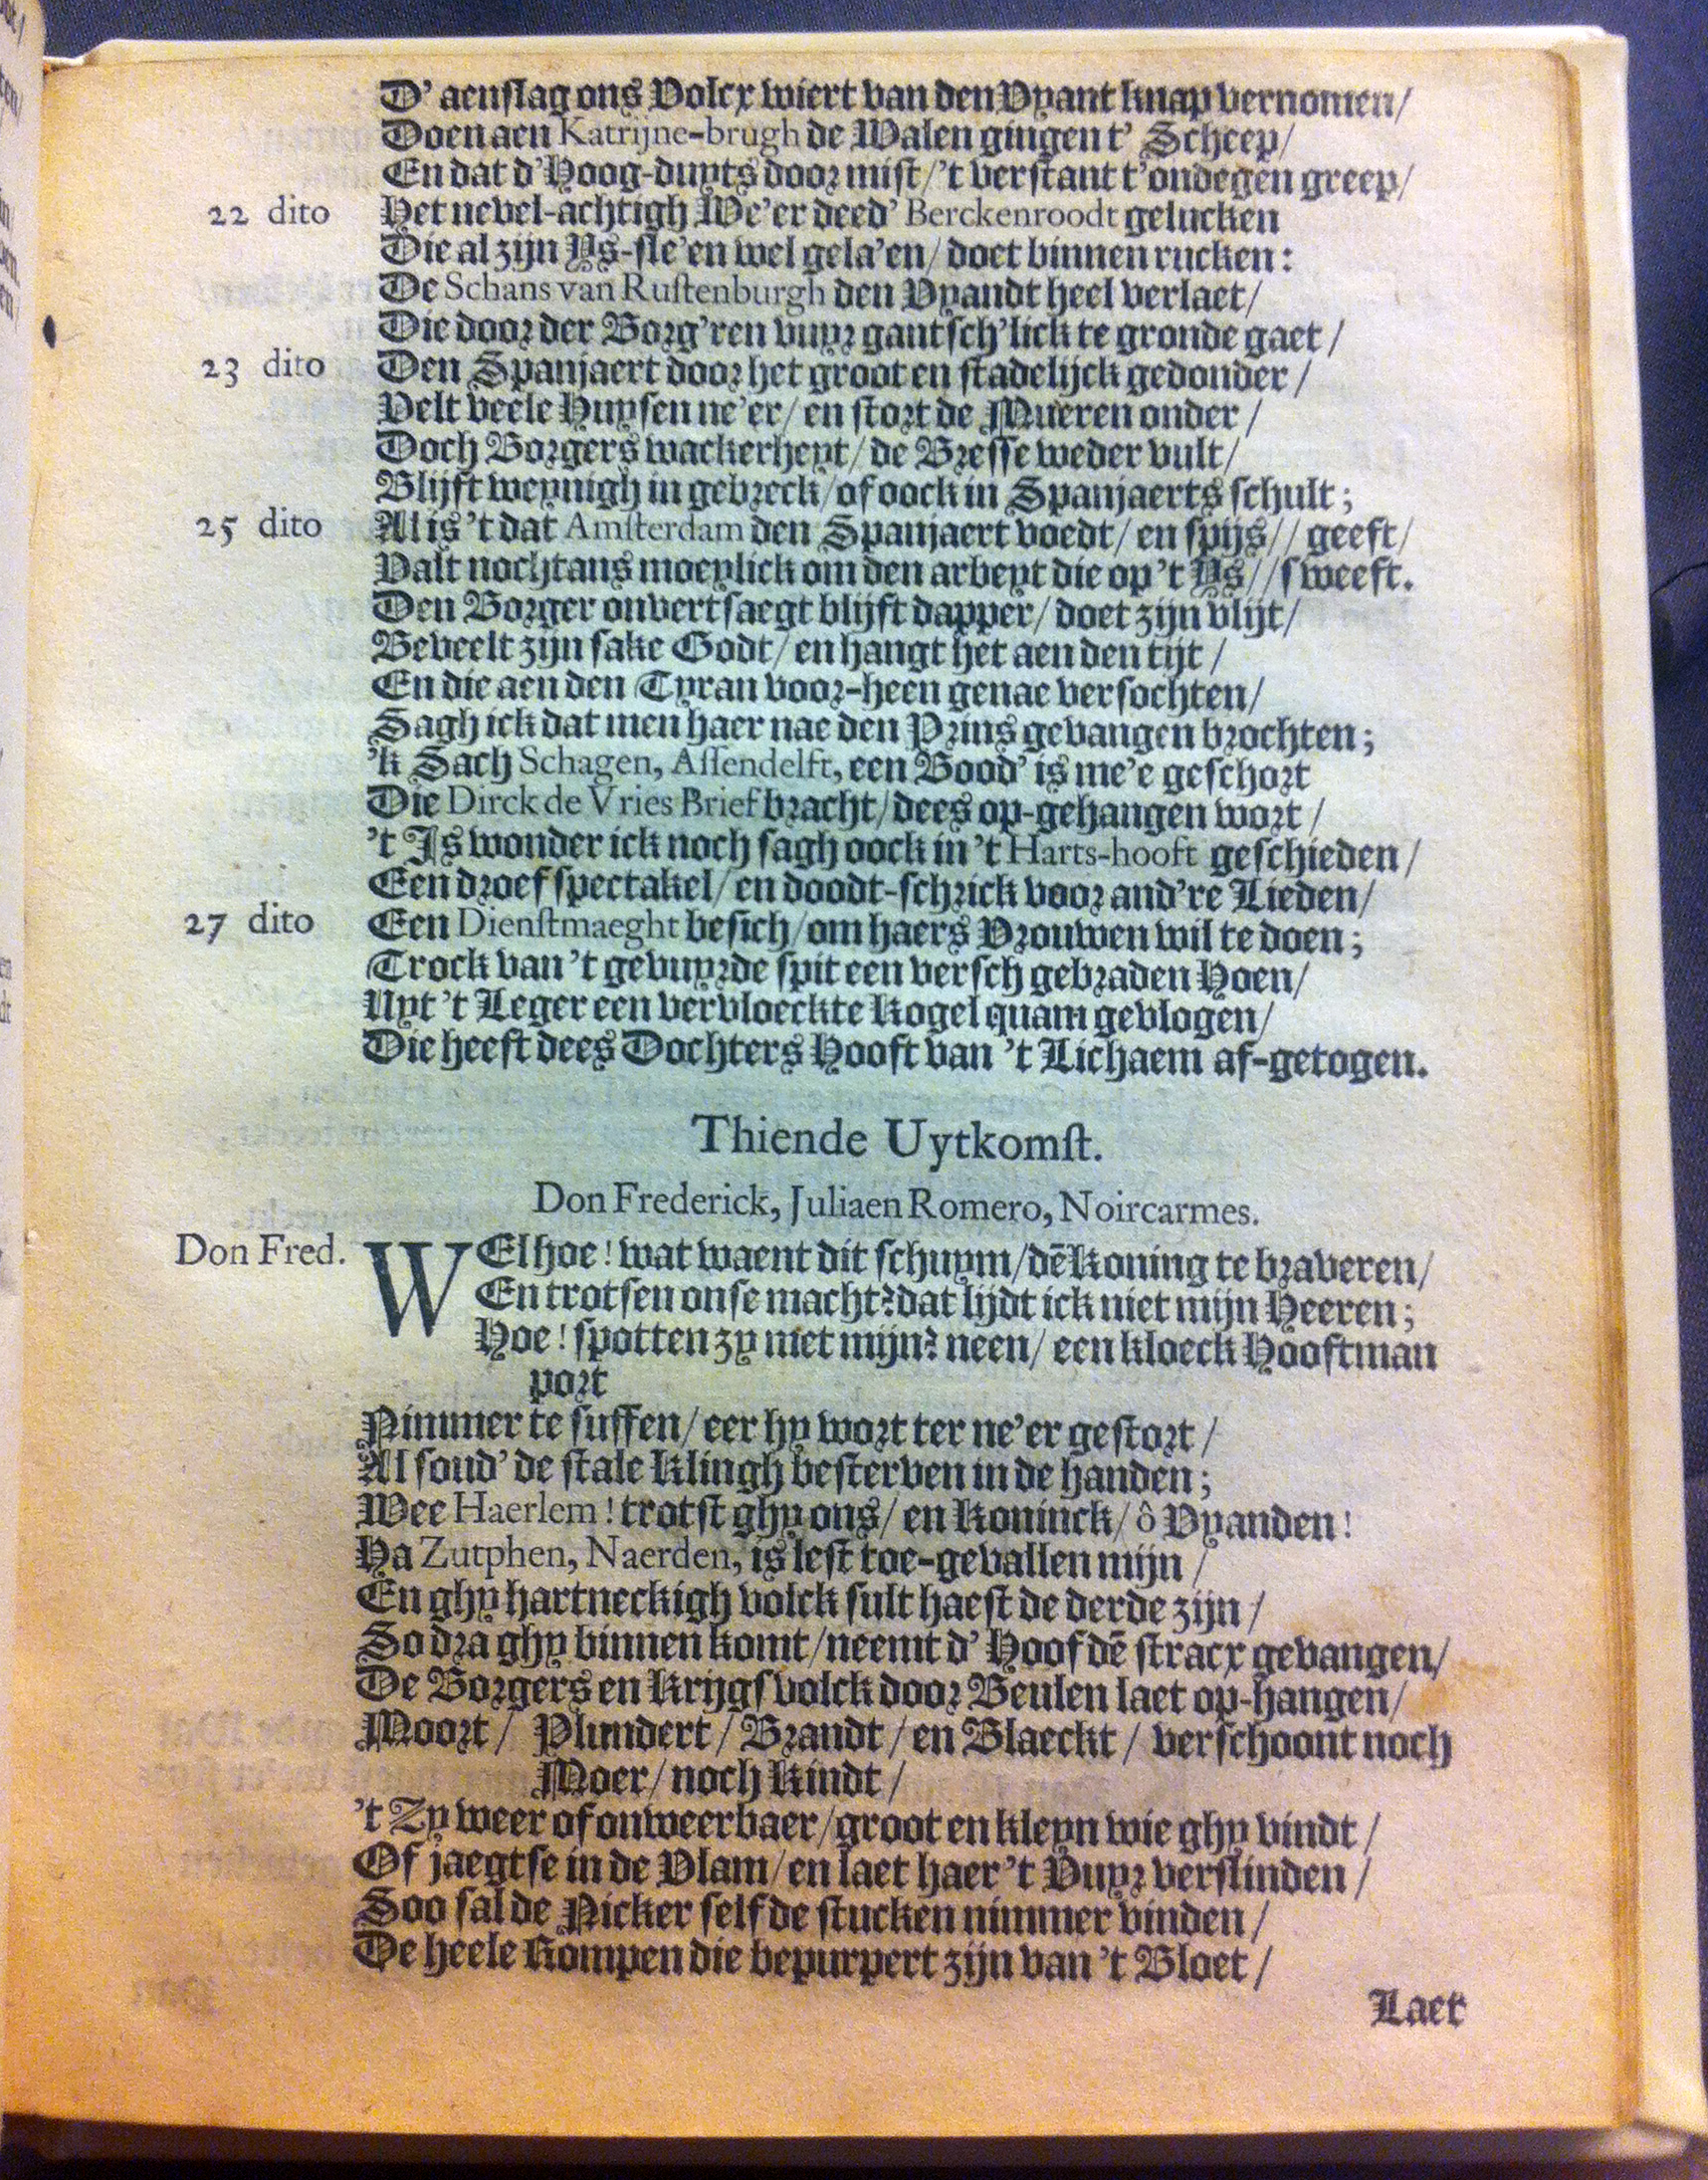 D' aenslag ons Volcx wiert van den Vyant knap vernomen/
Doen aen Katrijne-brugh de Walen gingen t' Scheep/
En dat d'Hoog-duyts door mist/'t verstant t'ondegen greep/
22 dito Het nevel-achtigh We'er deed' Berckenroodt gelucken
Die al zijn Ys-sle'en wel gela'en/ doet binnen rucken:
De Schans van Rustenburgh den Vyandt heel verlaet/
Die door der Borg'ren vuyr gantsch'lick te gronde gaet/
23 dito Den Spanjaert door het groot en stadelijck gedonder/
Velt veele Huysen ne'er/ en stort de Mueren onder/
Doch Borgers wackerheyt/ de Bresse weder vult/
Blijft weynigh in gebreck/ of oock in Spanjaerts schult;
25 dito Al is 't dat Amsterdam den Spanjaert voedt/ en spijs// geeft/
Valt nochtans moeylick om den arbeyt die op 't Ys// sweeft.
Den Borger onvertsaegt blijft dapper/ doet zijn vlijt/
Beveelt zijn sake Godt/ en hangt het aen den tijt/
En die aen den Tyran voor-heen genae versochten/
Sagh ick dat men haer nae den Prins gevangen brochten;
'k Sach Schagen, Assendelft, een Bood' is me'e geschort
Die Dirck de Vries Brief bracht/ dees op-gehangen wort/
't Is wonder ick noch sagh oock in 't Harts-hooft geschieden/
Een droef spectakel/ en doodt-schrick voor and're Lieden/
27 dito Een Dienstmaeght besich/ om haers Vrouwen wil te doen;
Trock van 't gevuyrde spit een versch gebraden Hoen/
Uyt 't Leger een vervloeckte Kogel quam gevlogen/
Die heeft dees Dochters Hooft van 't Lichaem af-getogen.
Thiende Uytkomst.
Don Frederick, Juliaen Romero, Noircarmes.
Don Fred. WEl hoe! wat waent dit schuym/dē Koning te braveren/
En trotsen onse macht? dat lijdt ick niet mijn Heeren;
Hoe! spotten zy met mijn? neen/ een kloeck Hooftman
port
Nimmer te suffen/ eer hy wort ter ne'er gestort/
Al soud' de stale Klingh besterven in de handen;
Wee Haerlem! trotst ghy ons/ en Koninck/ ô Vyanden!
Ha Zutphen, Naerden, is lest toe-gevallen mijn/
En ghy hartneckigh volck sult haest de derde zijn/
So dra ghy binnen komt/neemt d' Hoofdē stracx gevangen/
De Borgers en Krijgsvolck door Beulen laet op-hangen/
Moort/ Plundert/ Brandt/ en Blaeckt/ verschoont noch
Moer/ noch Kindt/
't Zy weer of onweerbaer/ groot en kleyn wie ghy vindt/
Of jaegtse in de Vlam/ en laet haer 't Vuyr verslinden/
Soo sal de Nicker self de stucken nimmer vinden/
De heele Rompen die bepurpert zijn van 't Bloet/
Laet